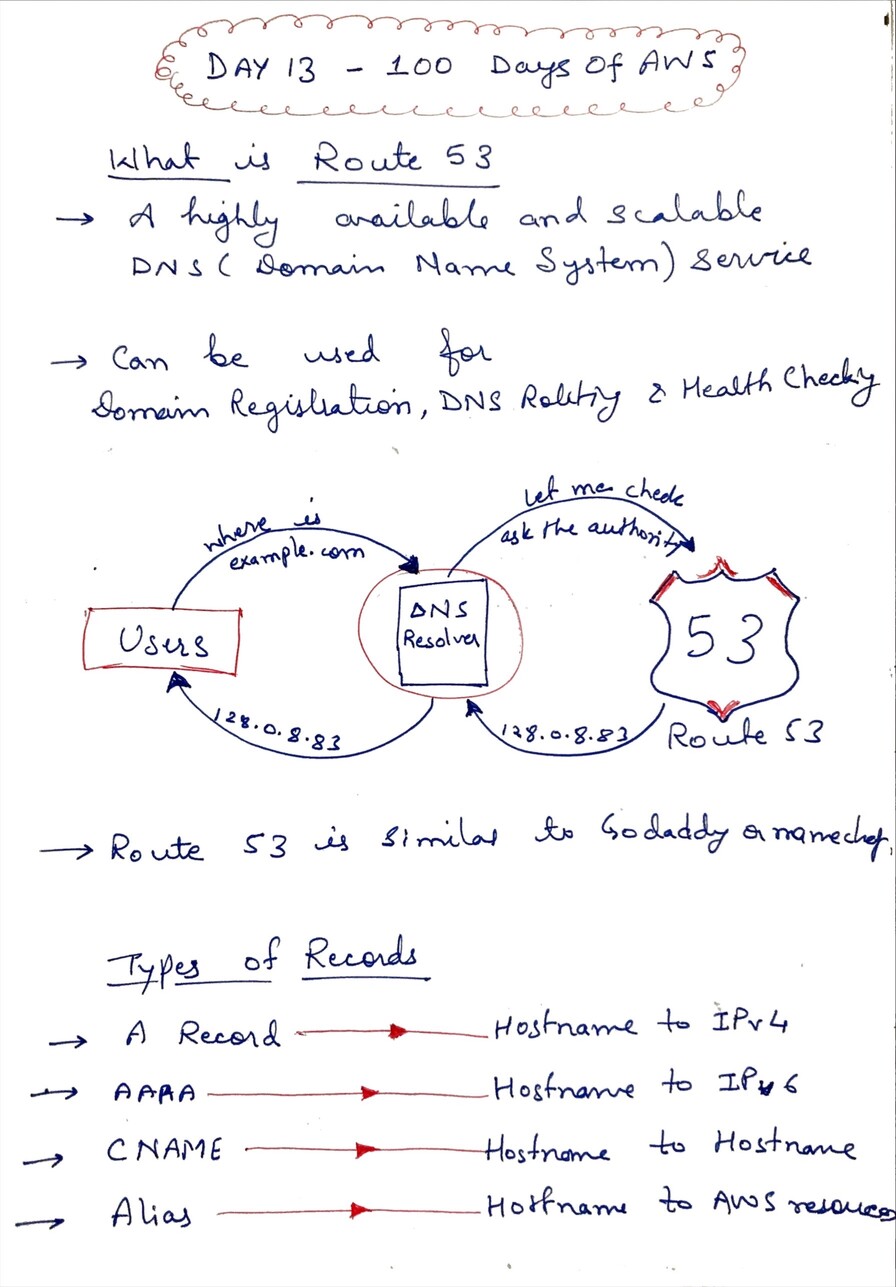 DAY 13 - 100 Days Of AWS
What is Route 53
→ A highly available and scalable
DNS ( Domain Name System) Service
→ Can be used for
Domain Registration, DNS Routing & Health Checking
where is
example.com
Let me check
ask the authority
Users
DNS
Resolver
53
128.0.8.83
128.0.8.83
Route 53
→ Route 53 is similar to Godaddy or namechep.
Types of Records
→ A Record → Hostname to IPv4
→ AAAA → Hostname to IPv6
→ CNAME → Hostname to Hostname
→ Alias → Hostname to AWS resources